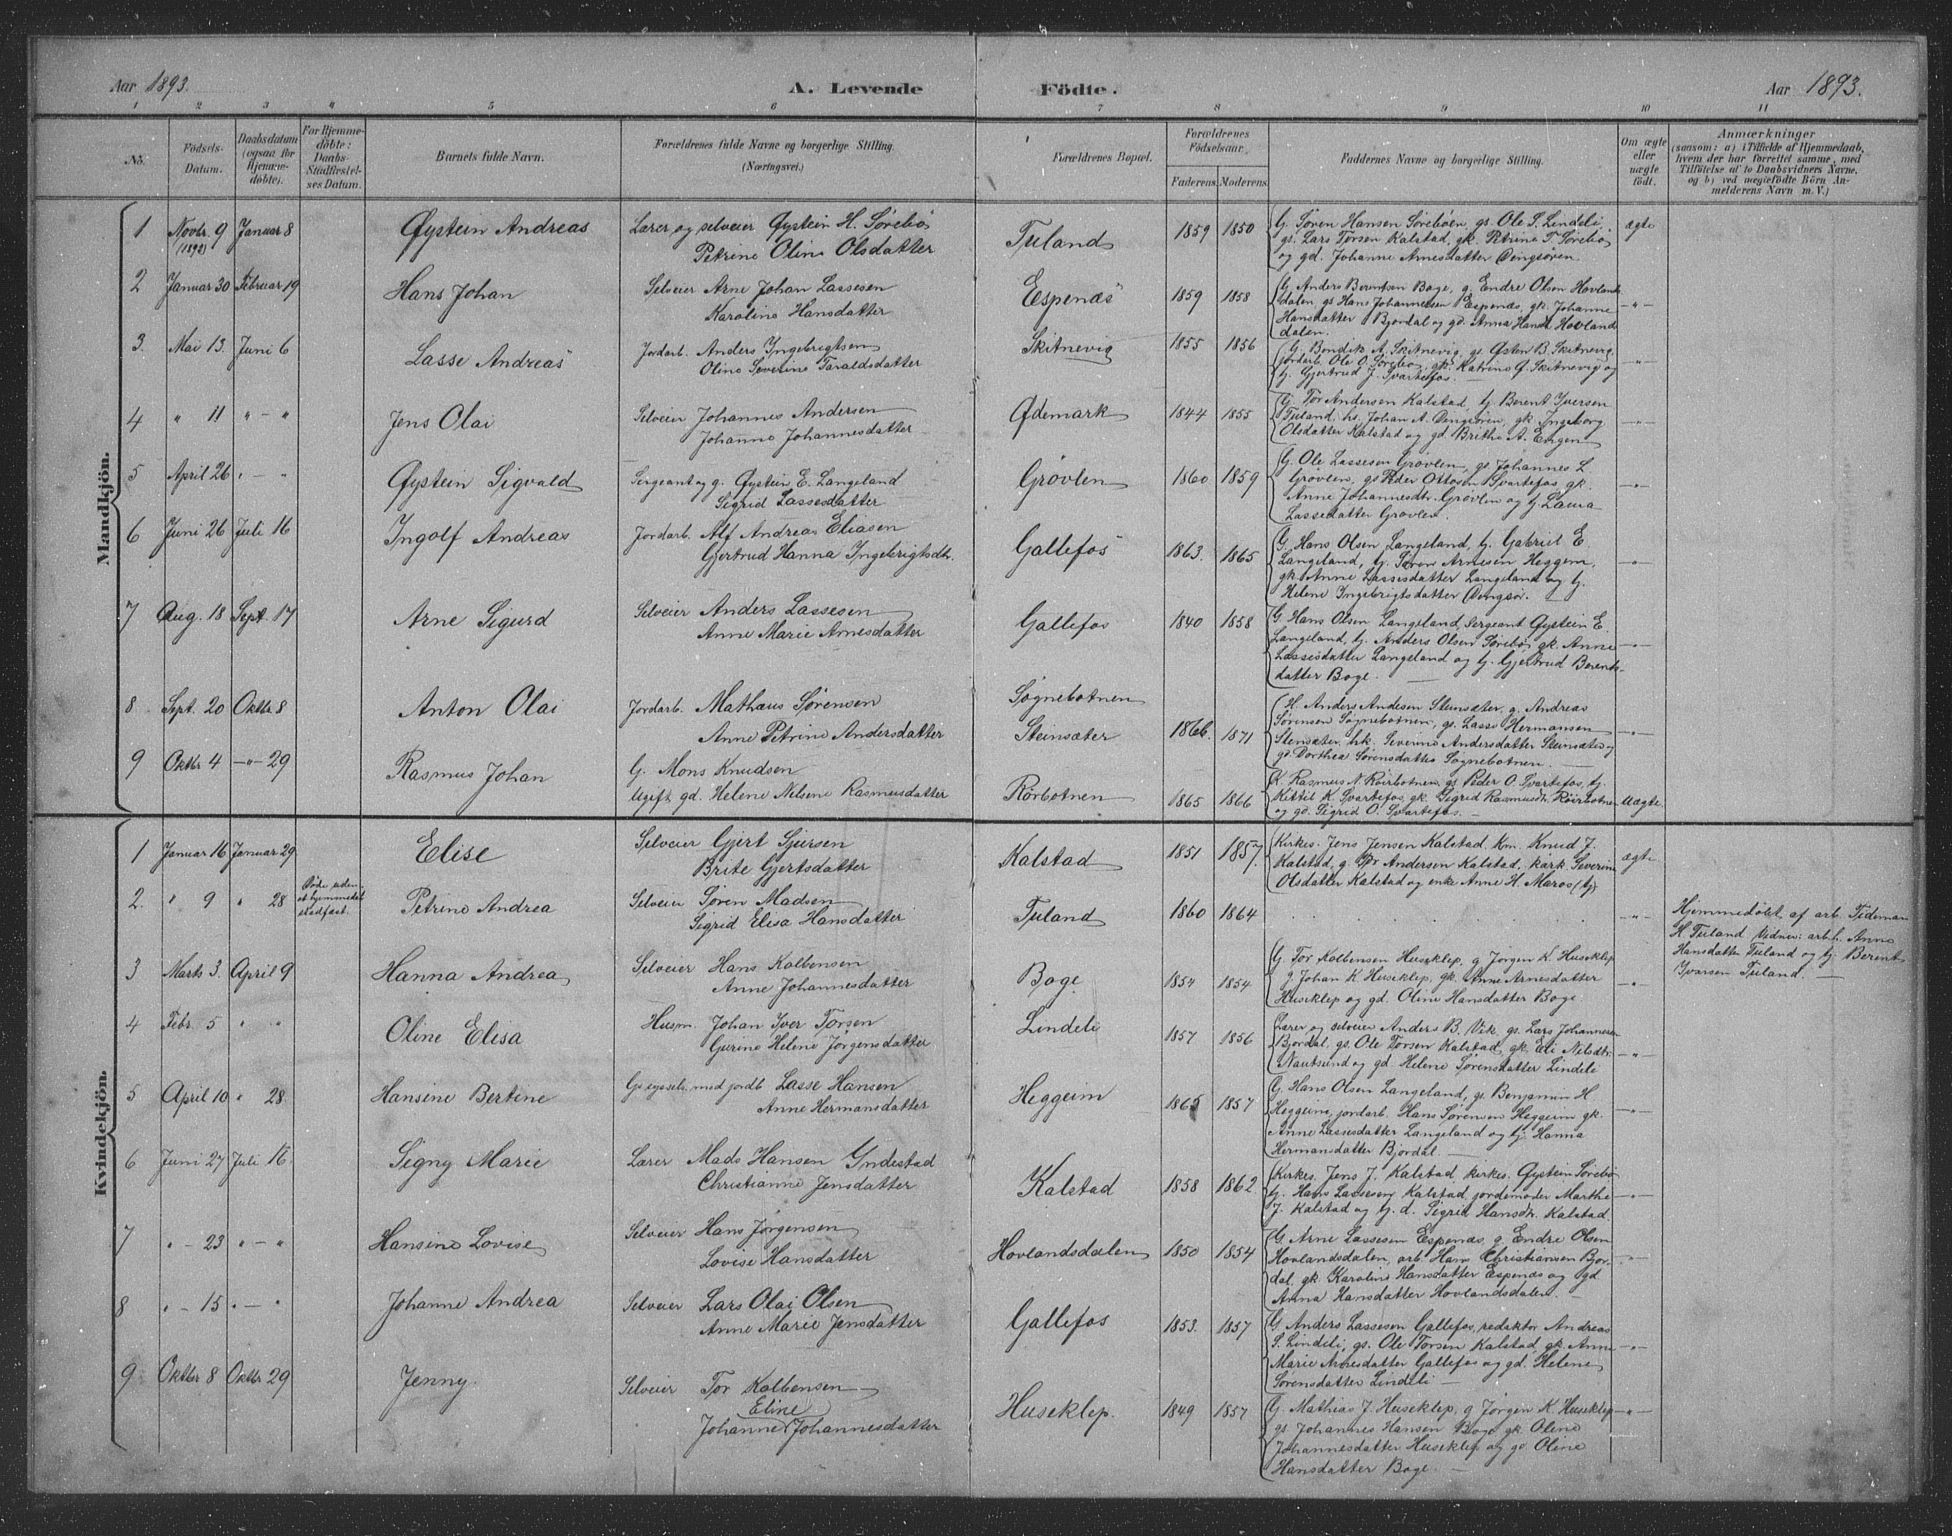 Aar 1893. A. Levende Födte. Aar 1893.
1 2 3 4 5 6 7 8 9 10 11
No.
Födsels-Datum.
Daabsdatum (ogsaa for Hjemmedöbte).
For Hjemmedöbte: Daabs-Stadfæstelses Datum.
Barnets fulde Navn.
Forældrenes fulde Navne og borgerlige Stilling. (Næringsvei.)
Forældrenes Bopæl.
Forældrenes Födselsaar.
Faderens. Moderens.
Faddernes Navne og borgerlige Stilling.
Om ægte eller uægte födt.
Anmærkninger
(saasom: a) i Tilfælde af Hjemmedaab, hvem der har forrettet samme, med Tilföielse af to Daabsvidners Navne. og b) ved uægtefödte Börn Anmelderens Navn m. V.)
Mandkjön.
1 Novbr. 9 (1892) Januar 8 Øystein Andreas Lærer og selveier Øystein H. Sørebø Tuland 1859 1850 G. Søren Hansen Sørebøen, gs. Ole S. Lindeli, ægte
Petrine Oline Olsdatter gs. Lars Torsen Kalstad, gk. Petrine T. Sørebø
og gd. Johanne Arnesdatter Oengsøren.
2 Januar 30 Februar 19 Hans Johan Selveier Arne Johan Lassesen Espenæs 1859 1858 G. Anders Berentsen Boge, g. Endre Olsen Hovlands- -"-
Karoline Hansdatter dalen, gs. Hans Johannessen Espenæs, gk. Johanne
Hansdatter Bjordal og gd. Anna Hansd. Hovlands-
dalen.
3 Mai 13. Juni 6 Lasse Andreas Jordarb. Anders Ingebrigtsen Skitnevig 1855 1856 G. Bendik A. Skitnevig, gs. Østen B. Skitnevig, -"-
Oline Severine Taraldsdatter jordarb. Ole O. Sørebø, gk. Katrine Ø. Skitnevig og
tj. Gjertrud J. Svartefos.
4 " 11 " - " Jens Olai Selveier Johannes Andersen Ødemark 1844 1855 G. Tor Andersen Kalstad, tj. Berent Iversen -"-
Johanne Johannesdatter Tuland, hs. Johan A. Oengsøren, gk. Ingeborg
Olsdatter Kalstad og gd. Brithe A. Engen
5 April 26 " - " Øystein Sigvald Sergeant og g. Øystein E. Langeland Grøvlen 1860 1859 G. Ole Lassesen Grøvlen, gs. Johannes L. -"-
Sigrid Lassesdatter Grøvlen, gs. Peder Ottosen Svartefos, gk.
Anne Johannesdtr. Grøvlen og tj. Laura
Lassedatter Grøvlen.
6 Juni 26 Juli 16 Ingolf Andreas Jordarb. Alf Andreas Eliasen Gallefos 1863. 1865 G. Hans Olsen Langeland, tj. Gabriel E. -"-
Gjertrud Hanna Ingebrigtsdtr. Langeland, tj. Søren Arnesen Heggem,
gk. Anne Lassesdatter Langeland og tj.
Helene Ingebrigtsdatter Oengsø.
7 Aug. 18 Sept. 17 Arne Sigurd Selveier Anders Lassesen Gallefos 1840 1858 G. Hans Olsen Langeland, Sergeant Øystein E. -"-
Anne Marie Arnesdatter Langeland, tj. Anders Olsen Sørebø, gk. Anne
Lassesdatter Langeland og tj. Gjertrud Berents-
datter Boge.
8 Sept. 20 Oktbr 8 Anton Olai Jordarb. Mathæus Sørensen Søgnebotnen 1866. 1871 H. Anders Andesen Steinsæter, g. Andreas -"-
Anne Petrine Andersdatter Steinsæter Sørensen Søgnebotnen, gs. Lasse Hermansen
Stensæter, hk. Severine Andersdatter Steinsæter og
gd. Dorthea Sørensdatter Søgnebotnen.
9 Oktbr 4 -"- 29 Rasmus Johan G. Mons Knudsen Rörbotnen 1865 1866 K. Rasmus N. Röirbotnen, gs. Peder O. Svartefos, tj. Uægte
Ugift gd. Helene Nilsine Rasmusdatter Kittil K. Svartefos, gk. Sigrid Rasmusdtr. Röirbotnen
og gd. Sigrid O. Svartefos.
Kvindekjön.
1 Januar 16 Januar 29 Elise Selveier Gjert Sjursen Kalstad 1851 1857 Kirkes. Jens Jensen Kalstad, km. Knud J. ægte
Brite Gjertsdatter Kalstad, g. Tor Andersen Kalstad, kark. Severine
Olsdatter Kalstad og enke Anne H. Maros (tj)
2. " 9 " 28 Døde uden at hjemmedaab stadfæst. Petrine Andrea Selveier Søren Madsen Tuland 1860 1864 -"- Hjemmedøbt af arb. Tideman
Sigrid Elisa Hansdatter H. Tuland Vidner: arbk. Anne
Hansdatter Tuland og tj. Berent
Ivarsen Tuland.
3 Marts 3. April 9 Hanna Andrea Selveier Hans Kolbensen Boge 1854 1854 G. Tor Kolbensen Huseklep, g. Jørgen K. Huseklep -"-
Anne Johannesdatter g. Johan K. Huseklep, gk. Anne Arnesdatter
Huseklep og gd. Oline Hansdatter Boge.
4 Febr. 5 " " Oline Elisa Husm. Johan Iver Torsen Lindeli 1857 1856 Lærer og selveier Anders B. Vik, gs. Lars Johannesen -"-
Gurine Helene Jørgensdatter Bjordal, gs. Ole Torsen Kalstad, gk. Eli Nilsdtr.
Nautsund og gd. Helene Sørensdatter Lindeli
5 April 10 " 28. Hansine Bertine Gs. syssels. med jordb. Lasse Hansen Heggeim 1865 1857 G. Hans Olsen Langeland, gs. Benjamin H. -"-
Anne Hermansdatter Heggeim, jordarb. Hans Sørensen Heggeim gk.
Anne Lassesdatter Langeland og tj. Hanna
Hermansdatter Bjordal.
6 Juni 27 Juli 16. Signy Marie Lærer Mads Hansen Yndestad Kalstad 1858 1862 Kirkes. Jens J. Kalstad, kirkes. Øystein Sørebø -"-
Christianne Jensdatter tj. Hans Lassesen Kalstad, jordemoder Marthe
J. Kalstad og tj. d. Sigrid Hansdtr. Kalstad.
7 " - 23 " - " Hansine Lovise Selveier Hans Jørgensen Hovlandsdalen 1850 1854 G. Arne Lassesen Espenæs, g. Endre Olsen -"-
Lovise Hansdatter Hovlandsdalen, arb. Hans Christiansen Bjor-
dal, gk. Karoline Hansdatter Espenæs og gd.
Anna Hansdatter Hovlandsdalen.
8 " - 15 " - " Johanne Andrea Selveier Lars Olai Olsen Gallefos 1853. 1857 G. Anders Lassesen Gallefos, redaktør Andreas -"-
Anne Marie Jensdatter S. Lindeli, gs. Ole Torsen Kalstad, gk. Anne
Marie Arnesdatter Gallefos og gd. Helene
Sørensdatter Lindeli
9 Oktbr 8 Oktbr. 29 Jenny. Selveier Tor Kolbensen Huseklep. 1849 1857 G. Mathias J. Huseklep, g. Jørgen K. Huseklep -"-
Eline gs. Johannes Hansen Boge, gk. Oline
Johanne Johannesdatter Johannesdatter Huseklep og gd. Oline
Hansdatter Boge.